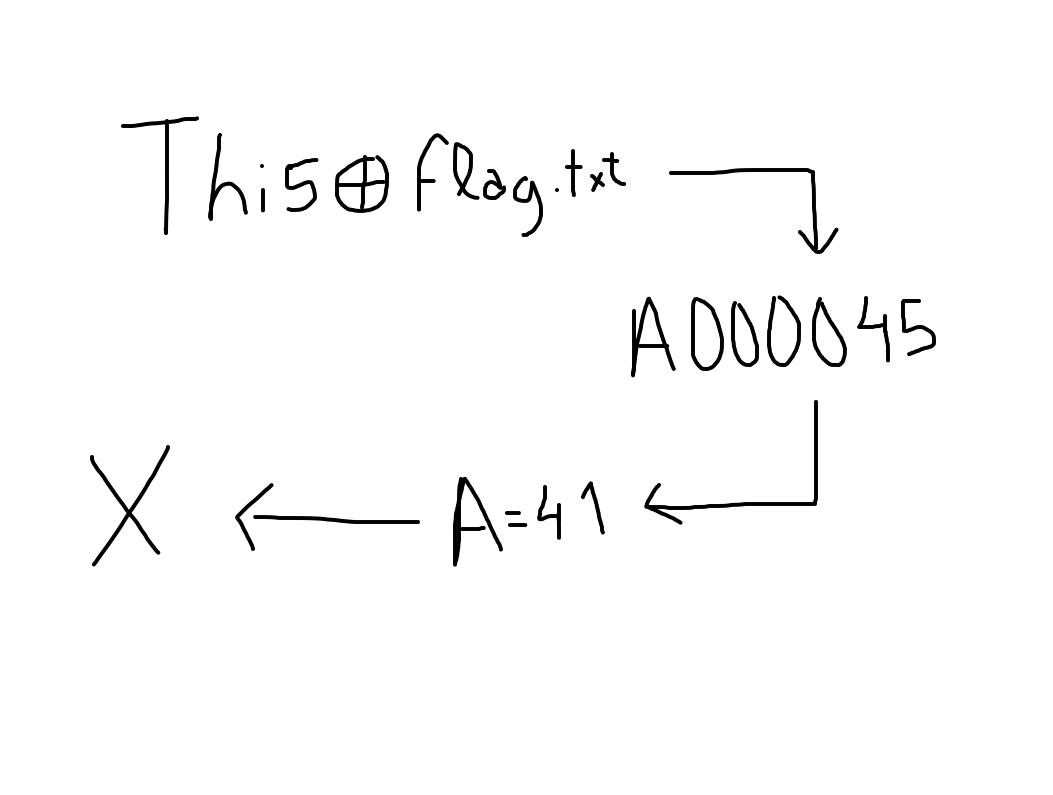 Thi5⊕flag.txt
A000045
A=41
X